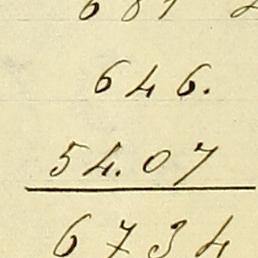 646.
54.07
6734